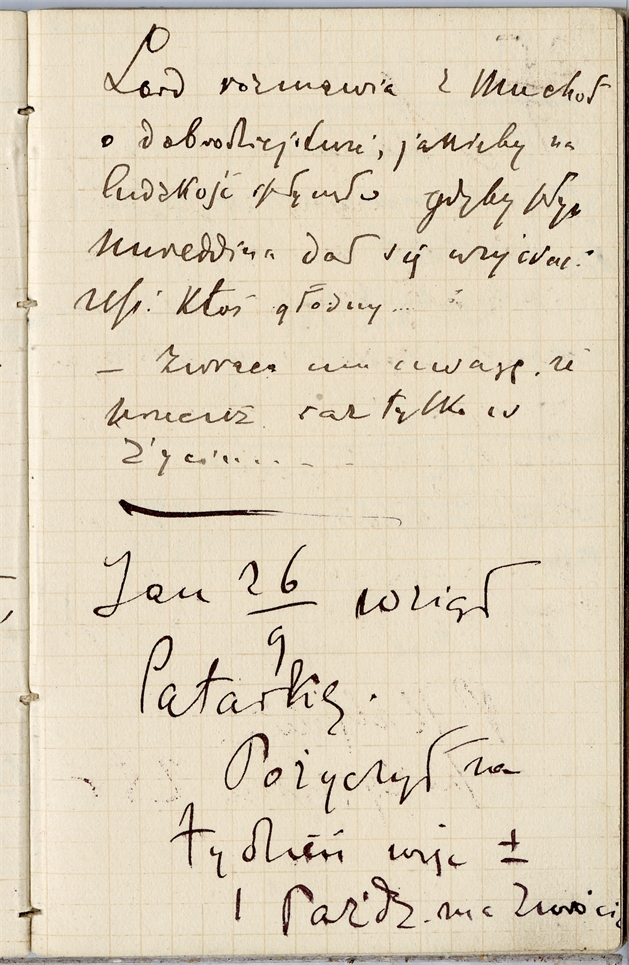 Lord rozmawia z Muchoł
o dobrodziejstwie, jakieby na
ludzkość spłynęło gdyby
Nureddina dał się
Ktoś głodny...
— Zwraca mu uwagę, że
przecież raz tylko w
życiu....
Jan 26/9 wziął
Latarkę.
Pożyczył na
tydzień więc ±
1 Paźdz. ma zwrócić